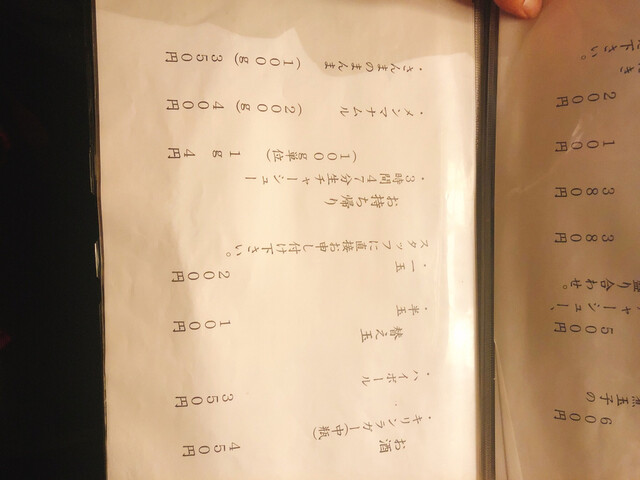 600円
煮玉子の
500円
ャーシュー、
盛り合わせ。
380円
380円
100円
200円
下さい。
お酒
・キリンラガー(中瓶) 450円
・ハイボール 350円
替え玉
・半玉 100円
・一玉 200円
スタッフに直接お申し付け下さい。
お持ち帰り
・3時間47分生チャーシュー
(100g単位) 1g 4円
・メンマナムル (200g) 400円
・さんまのまんま (100g) 350円